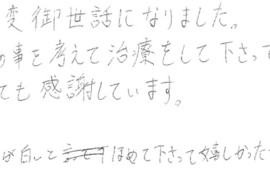 変御世話になりました。
の事を考えて治療をして下さって
ても感謝しています。
が白いと ほめて下さって嬉しかった